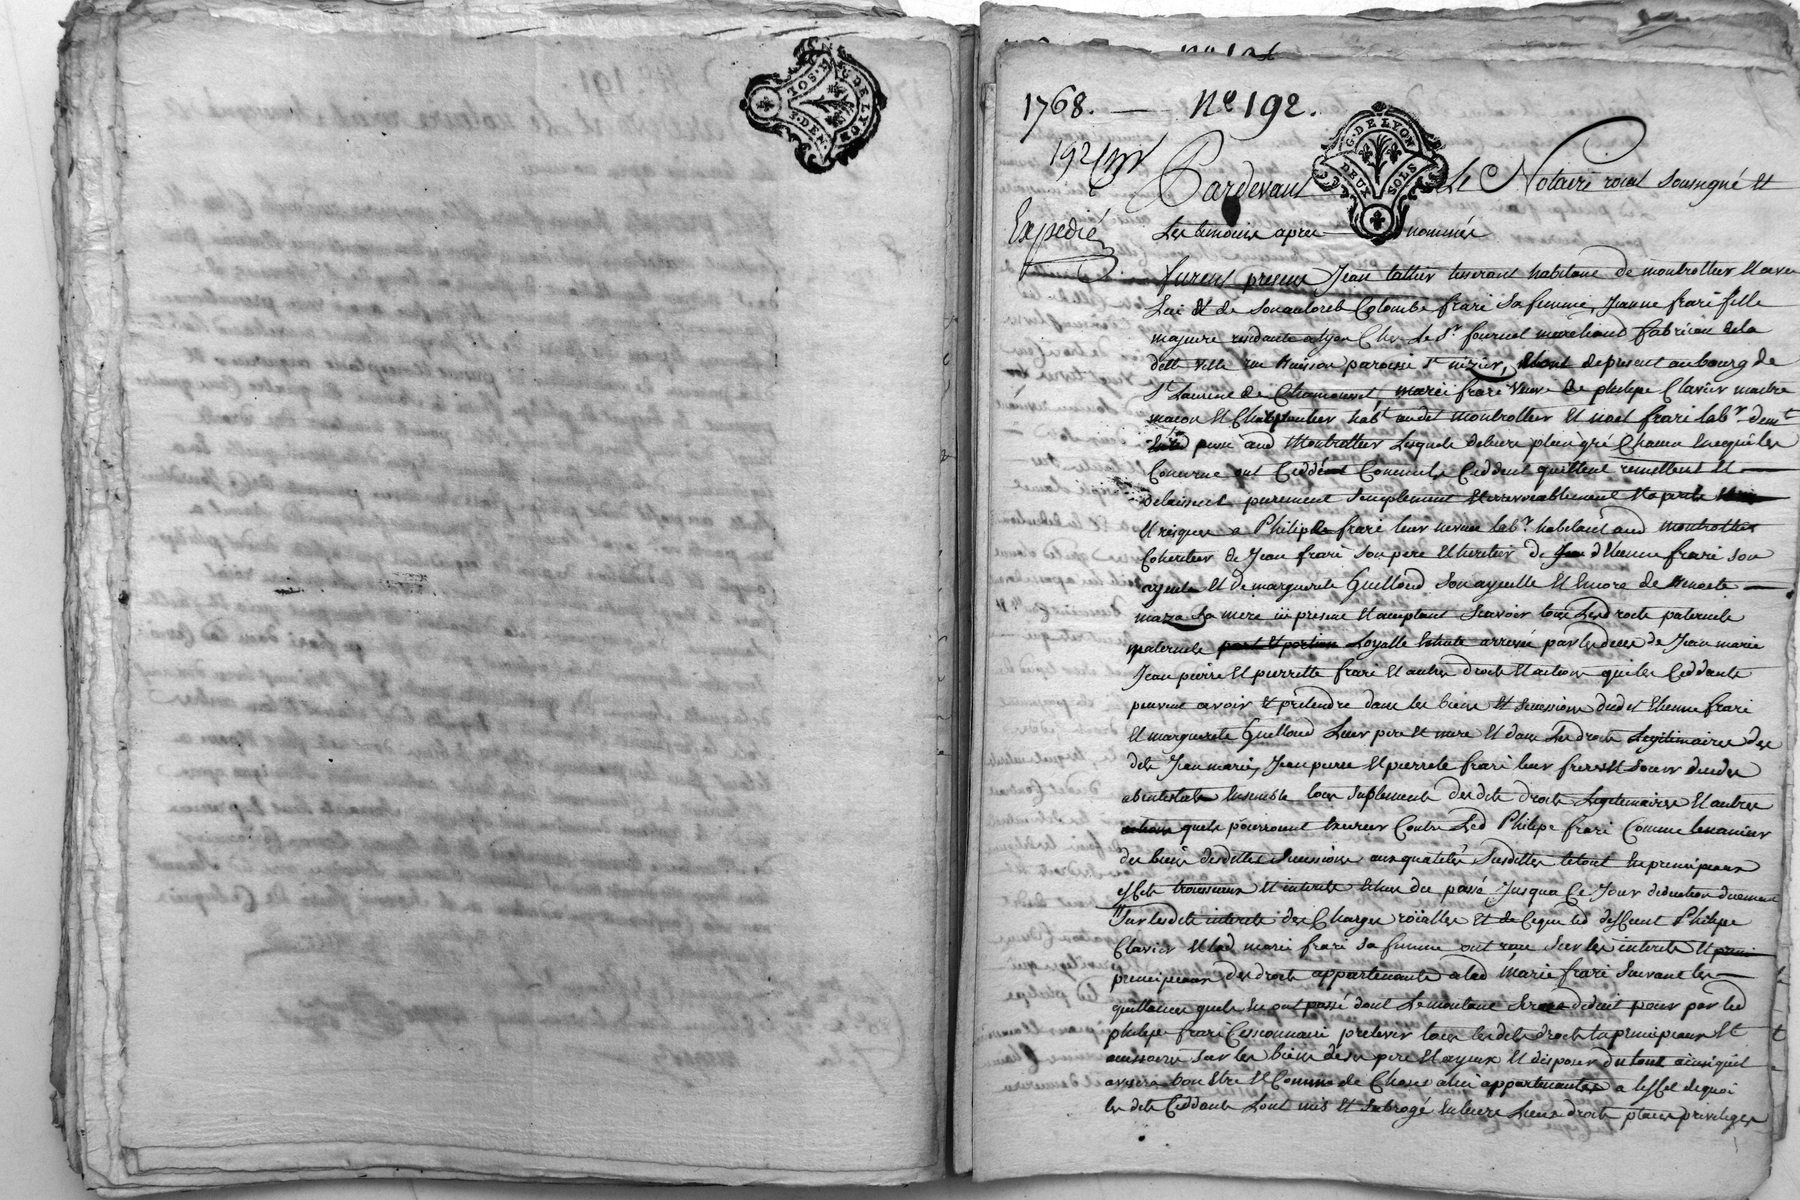 G. DE LYON
1768. — Ne 192.
192
G. DE LYON
DEUX SOLS
Pardevant Le Notaire roial soussigné Et
Expedié
Les temoins apres nommés
furent presens Jean tallier tisserant habitant de montrottier Et avec
Lui Et de son autorité Colombe frari sa femme, Jeanne frari fille
majeure residante a lyon Chez Le Sr fournel marchand fabrican de la
ditte ville rue Buisson paroisse St nizier, de present au bourg de
St Laurent de Chamousset, marie frari veuve de philipe Clavier maitre
macon Et Charpentier habt audit montrottier Et noel frari labr demt
aud Montrottier Lesquels de leur plein gré Chacun En ce qui les
Concerne ont Ceddé Comme ils Ceddent quittent remettent Et
delaissent purement simplement Et irrevocablement Et a perils
Et risques a Philippe frari leur neveu labr habitant aud montrottier
Coheritier de Jean frari son pere Et heritier de Etienne frari son
ayeul Et de marguerite Guilloud son ayeulle Et Encore de
maza sa mere ici present Et acceptant scavoir tous Les droits paternels
maternels part Et portion Loyalle Echute arrivée par les deces de Jean marie
Jean pierre Et pierrette frari Et autres droits Et actions que les Ceddants
peuvent avoir Et pretendre dans les biens Et successions dudit Etienne frari
Et marguerite Guilloud Leurs pere Et mere Et dans Les droits Legitimaires des
dits Jean marie, Jean pierre Et pierrette frari leurs freres Et soeur decedés
abintestats Ensemble tous suplements desdits droits Legitimaires Et autres
actions quels pourroient Exercer Contre Led Philipe frari Comme tenancier
des biens desdittes successions aux qualités susdittes le tout En principaux
Effets trousseaux Et interets Echus du passé Jusqua Ce Jour deduction
sur lesdits interets des Charges roïalles Et de Ce que led deffunt Philipe
Clavier Et lad marie frari sa femme ont recu sur les interets Et
principaux des droits appartenants a lad marie frari suivant les
quittances quils En ont passé dont Le montant sera deduit pour par led
philipe frari Cessionnaire prelever tous lesdits droits En principaux Et
accessoires sur les biens de ses pere Et ayeux Et disposer du tout ainsi quil
avisera bon Etre Et Comme de Choses a lui appartenantes a leffet de quoi
les dits Ceddants Lont mis Et subrogé En leurs Lieux droits places privileges